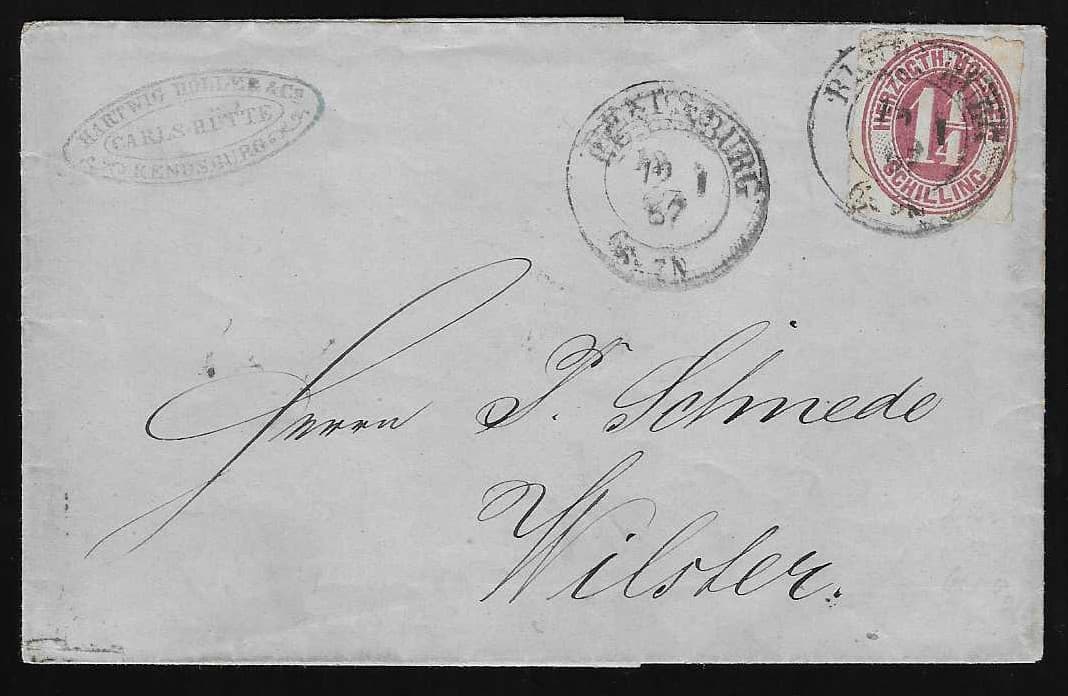 HARTWIG HOLLER & Co
CARLS-HÜTTE
RENDSBURG
RENDSBURG
10 1
67
6-7N
HERZOGTH. HOLSTEIN
1 1/4
SCHILLING
Herrn P. Schmede
Wilster.